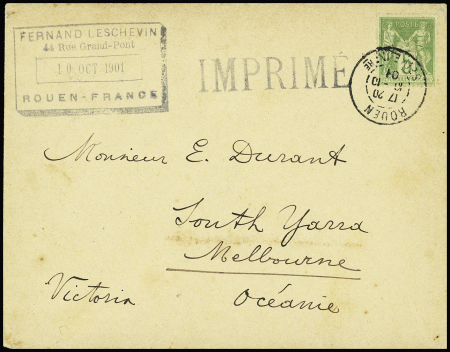 FERNAND LESCHEVIN
44 Rue Grand-Pont
10 OCT 1901
ROUEN-FRANCE
IMPRIMÉ
POSTE
ROUEN
17 20
10
01
Monsieur E. Durant
South Yarra
Melbourne
Victoria
Océanie